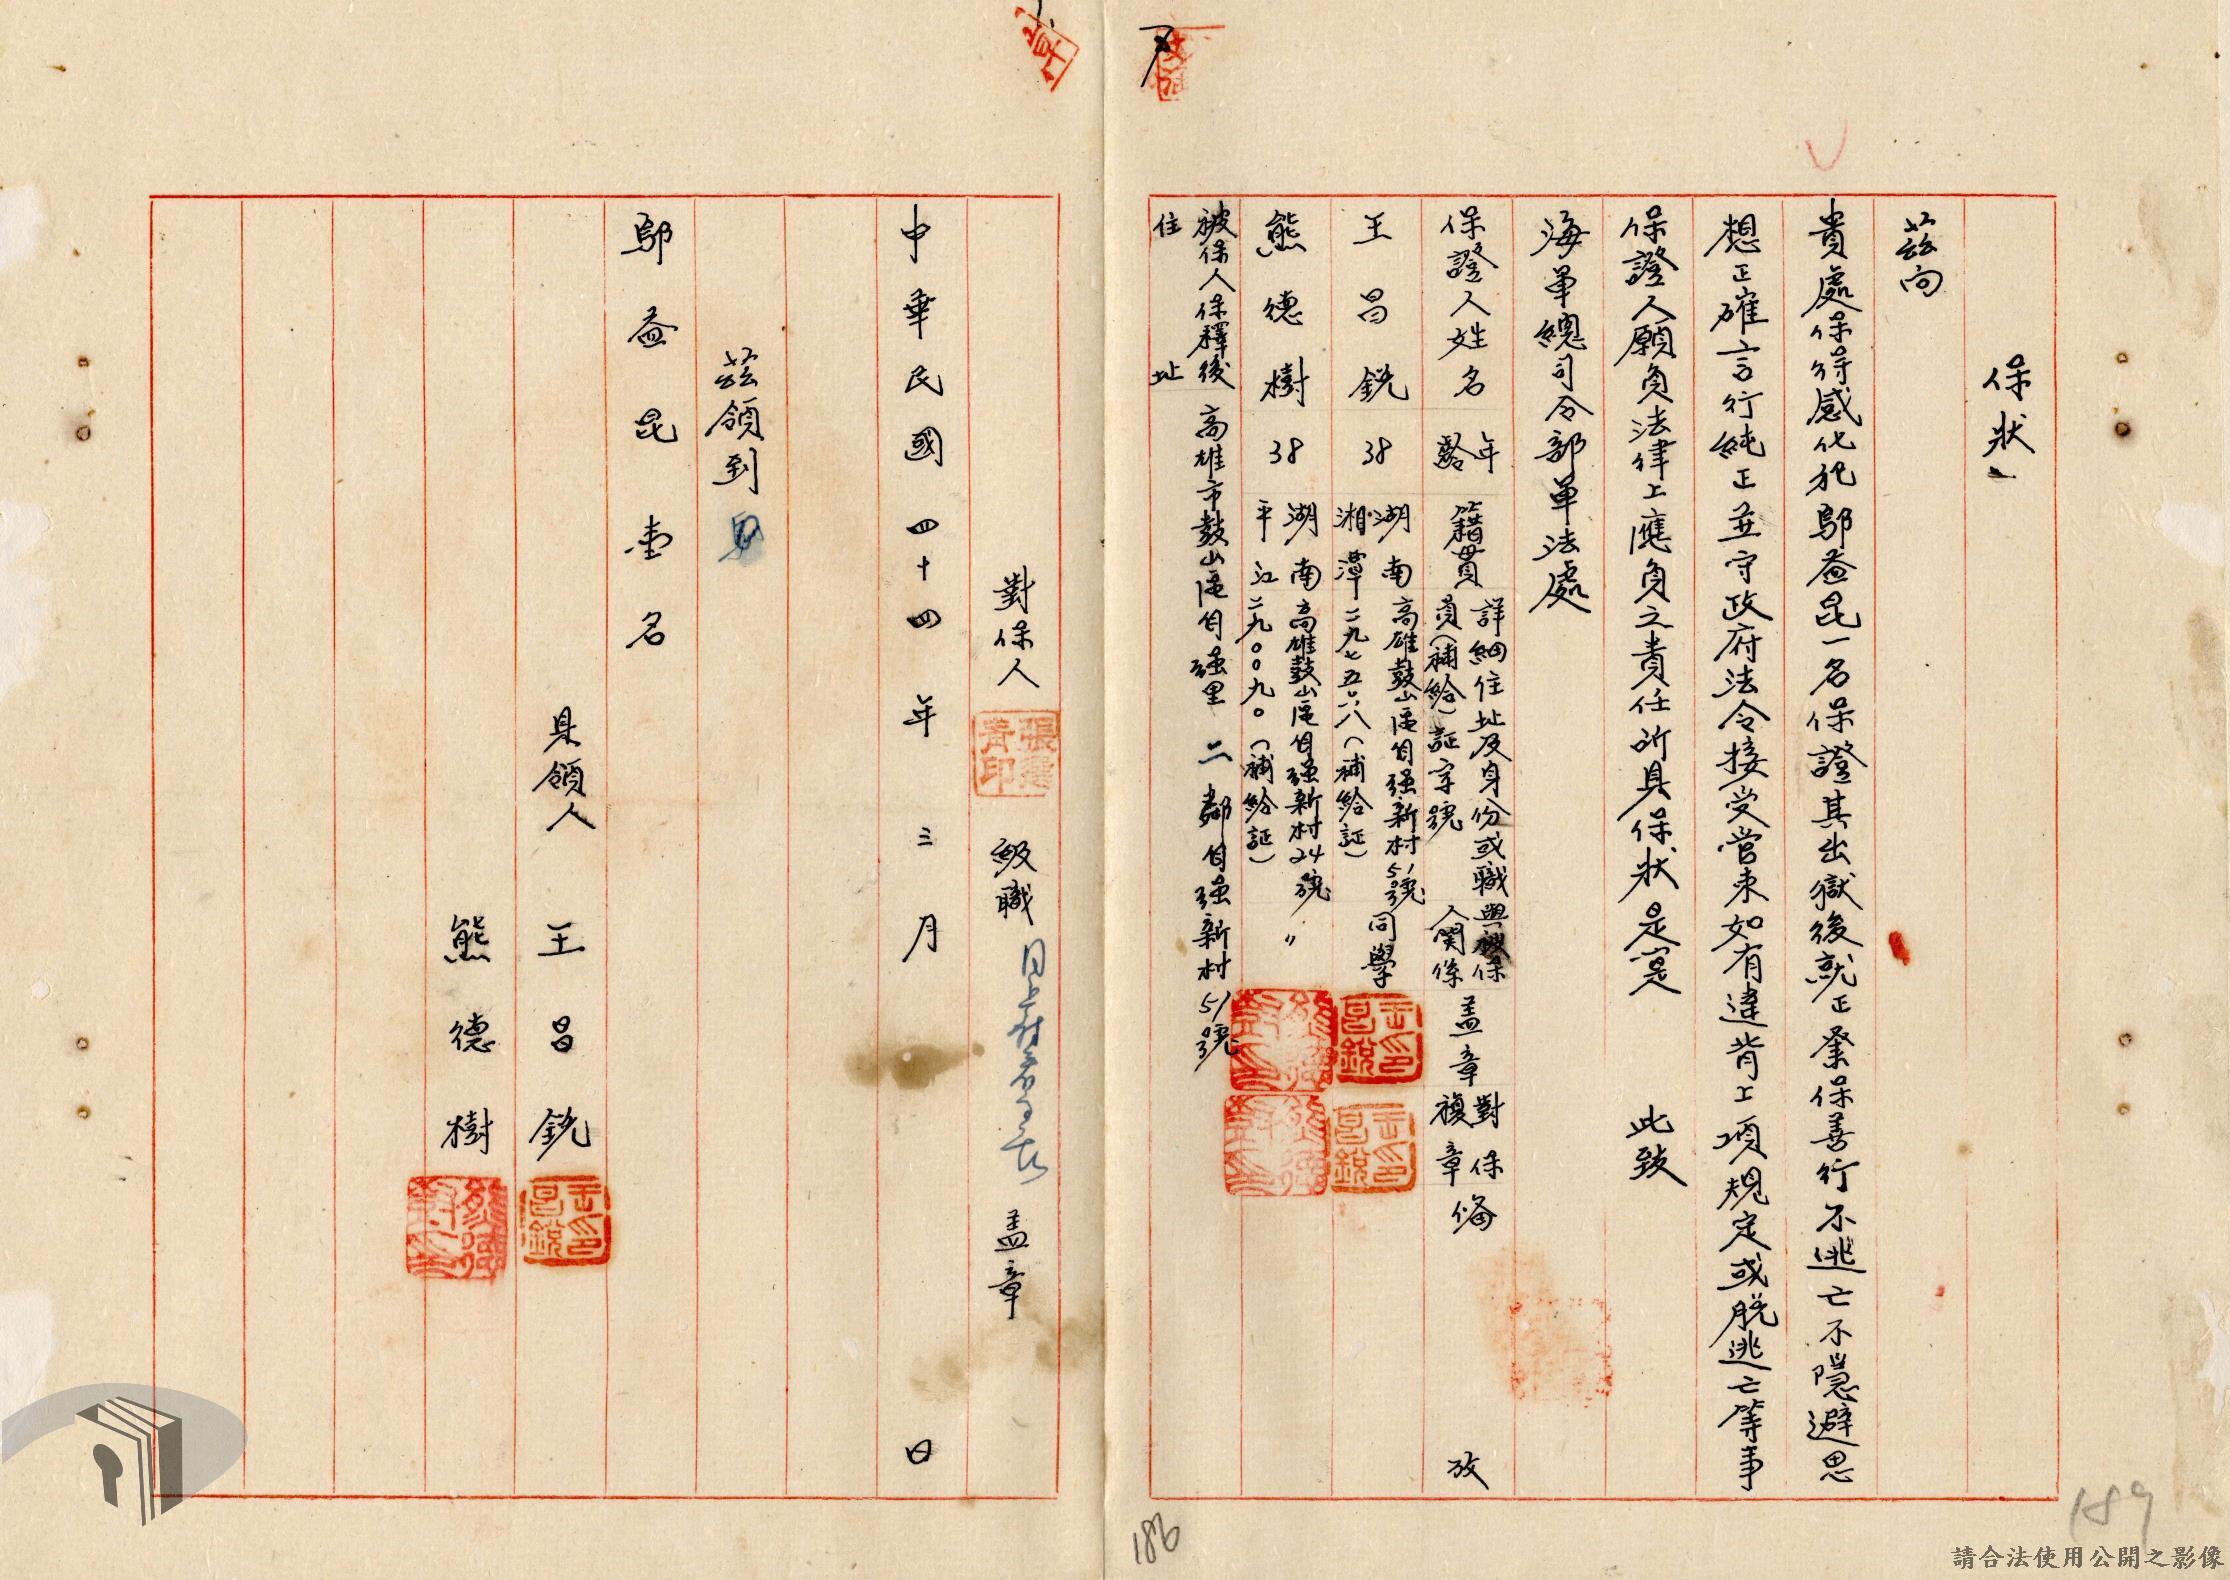 保狀
茲向
貴處保符感化犯鄔益昆一名保證其出獄後就正業保善行不逃亡不隱避思
想正確言行純正並守政府法令接受管束如有違背上項規定或脱逃亡等事
保證人願負法律上應負之責任所具保狀是實 此致
海軍總司令部軍法處
保證人姓名 年齡 籍貫 詳細住址及身份或職員(補給)証字號 與被保人關係 蓋章 對保複章 備攷
王昌銳 38 湖南湘潭 高雄鼓山區自强新村51號 二九七五六八(補給証) 同學
熊德樹 38 湖南平江 高雄鼓山區自强新村24號 二九00九0(補給証) 〃
被保人保釋後住址 高雄市鼓山區自强里 二鄰自强新村51號
對保人 級職 蓋章
中華民國四十四年三月 日
茲領到
鄔益昆壹名
具領人 王昌銳
熊德樹
186
189
請合法使用公開之影像